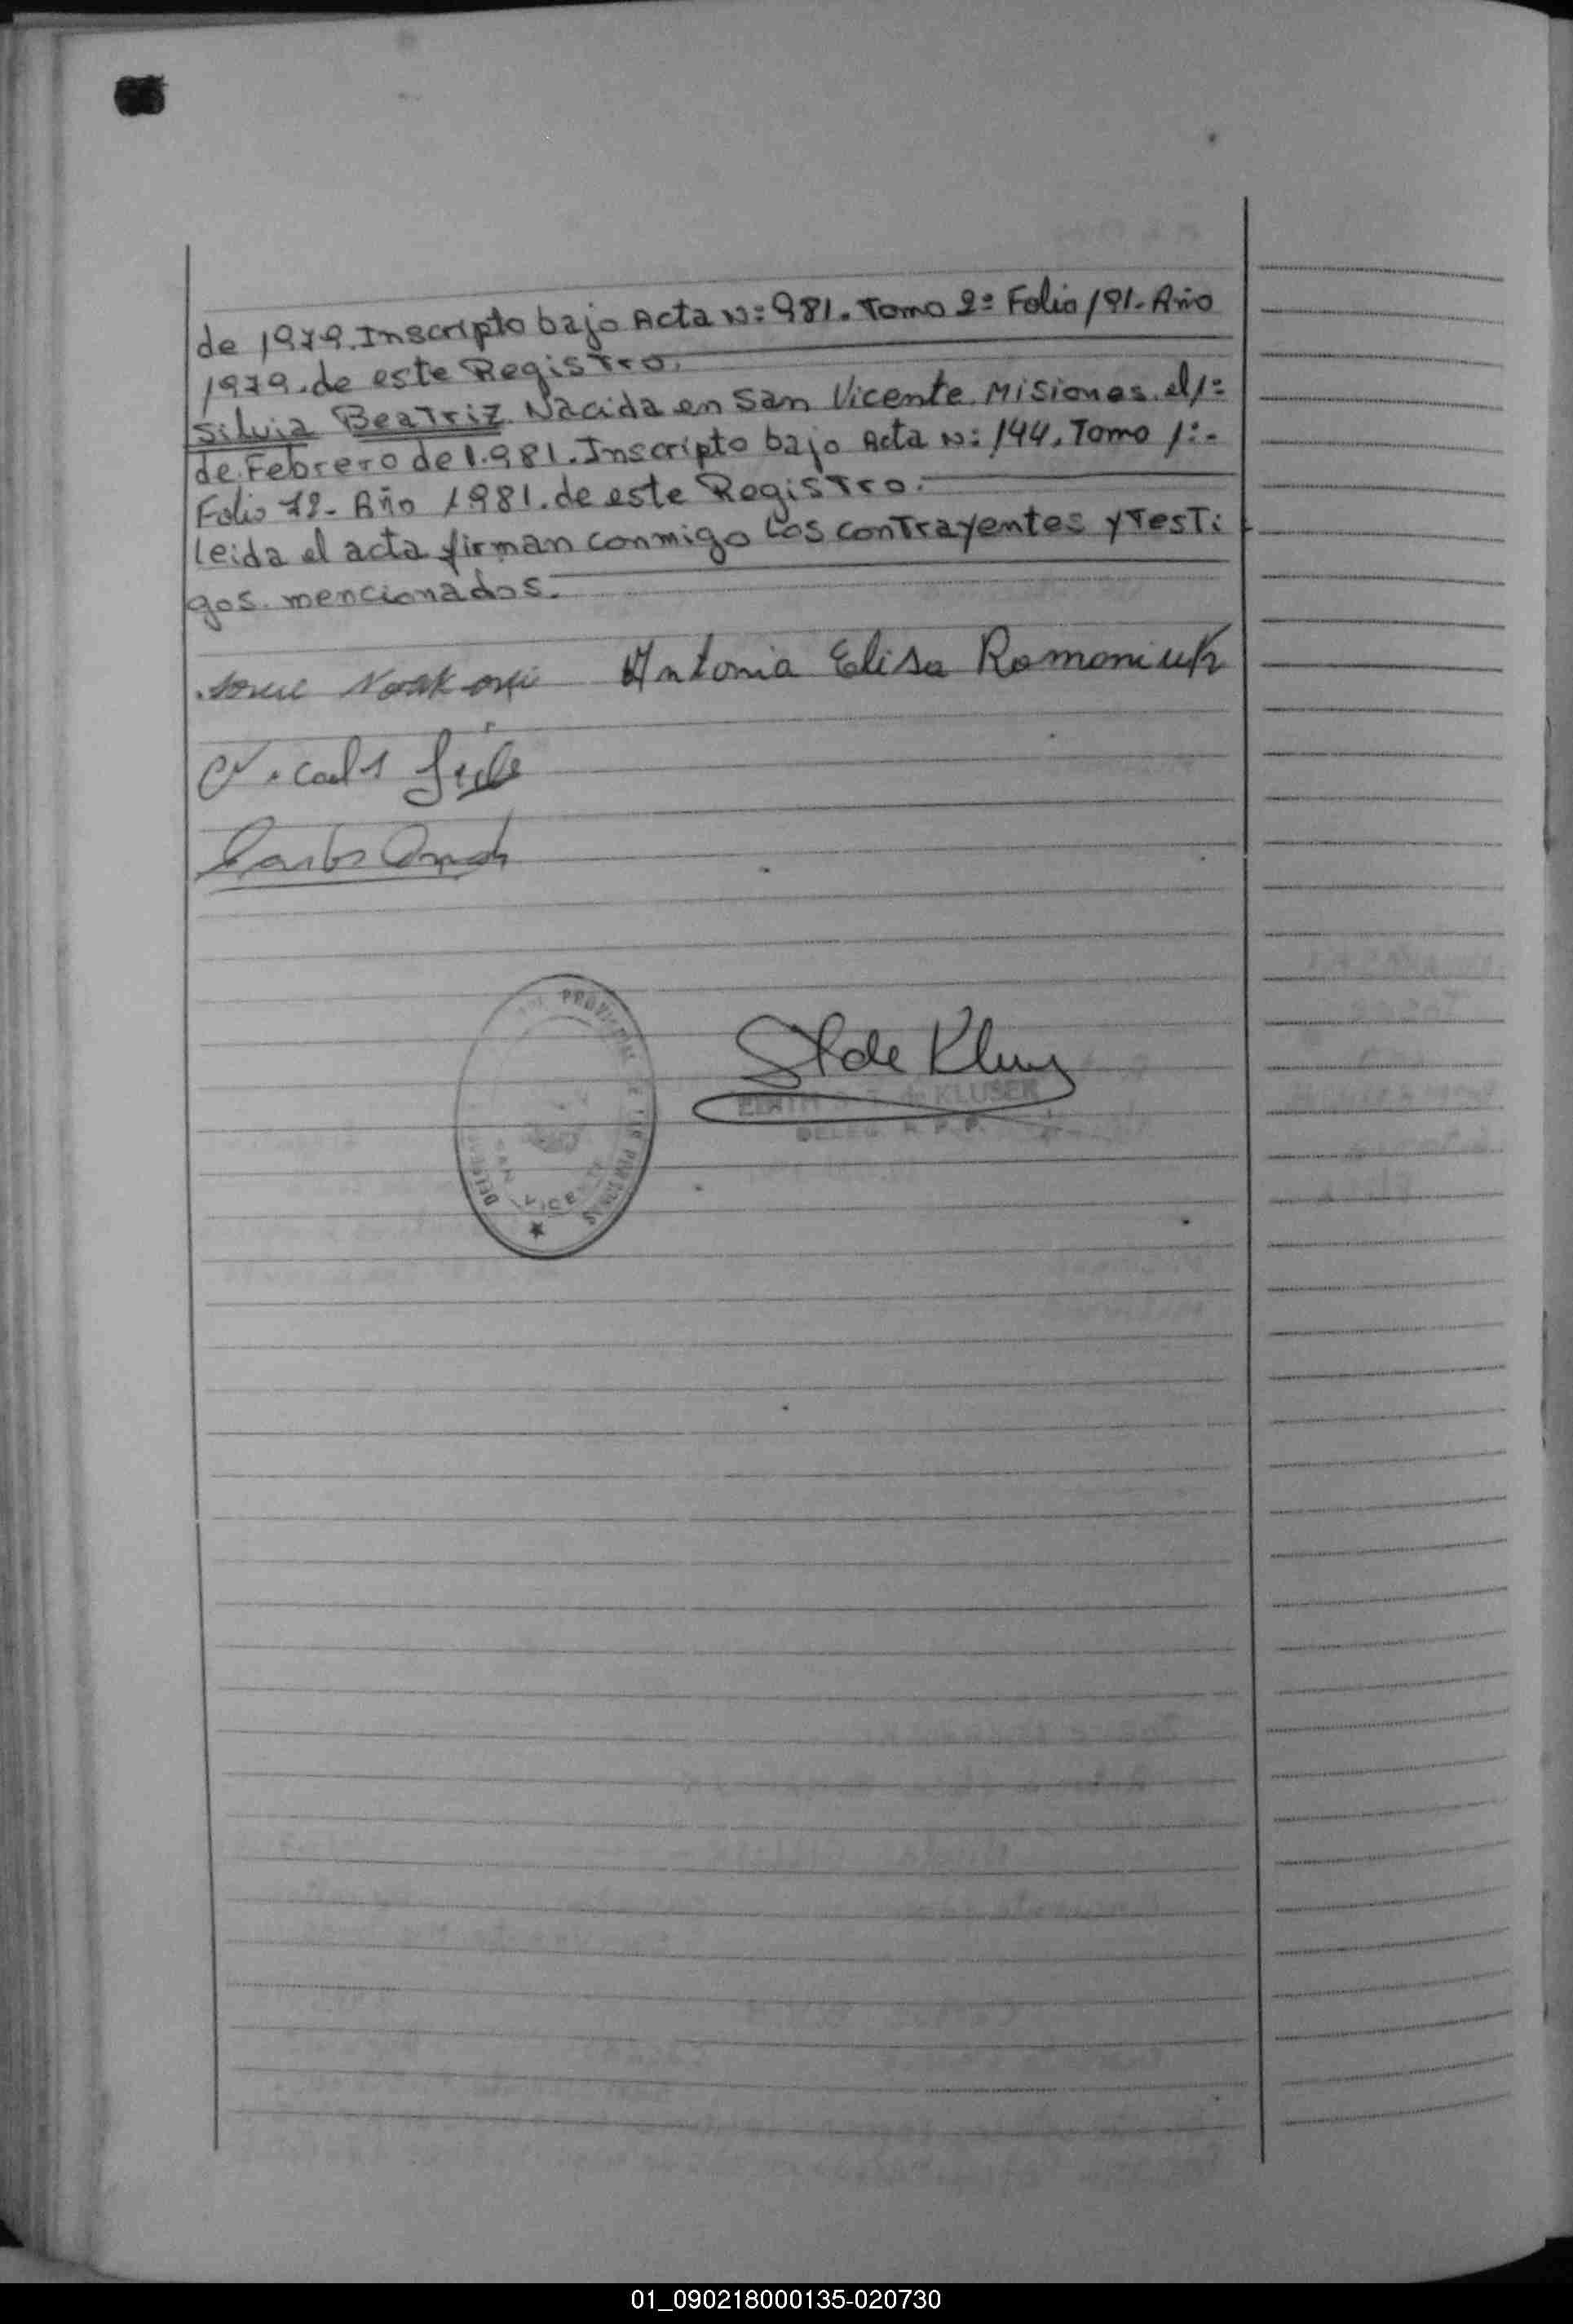 de 1979. Inscripto bajo Acta N: 981. Tomo 2º Folio 191. Año
1979. de este Registro.
Silvia Beatriz Nacida en San Vicente. Misiones. el 1º
de Febrero de 1.981. Inscripto bajo Acta N: 144. Tomo 1º.-
Folio 72- Año 1981. de este Registro.
leida el acta firman conmigo los contrayentes y testi
gos. mencionados.
Antonia Elisa Romaniuk
Carlos
S F de Klus
EDITH S. F. de KLUSEK
DELEG. R. P. P.
PROVINCIAL DE LAS PERSONAS
SAN VICENTE
01_090218000135-020730